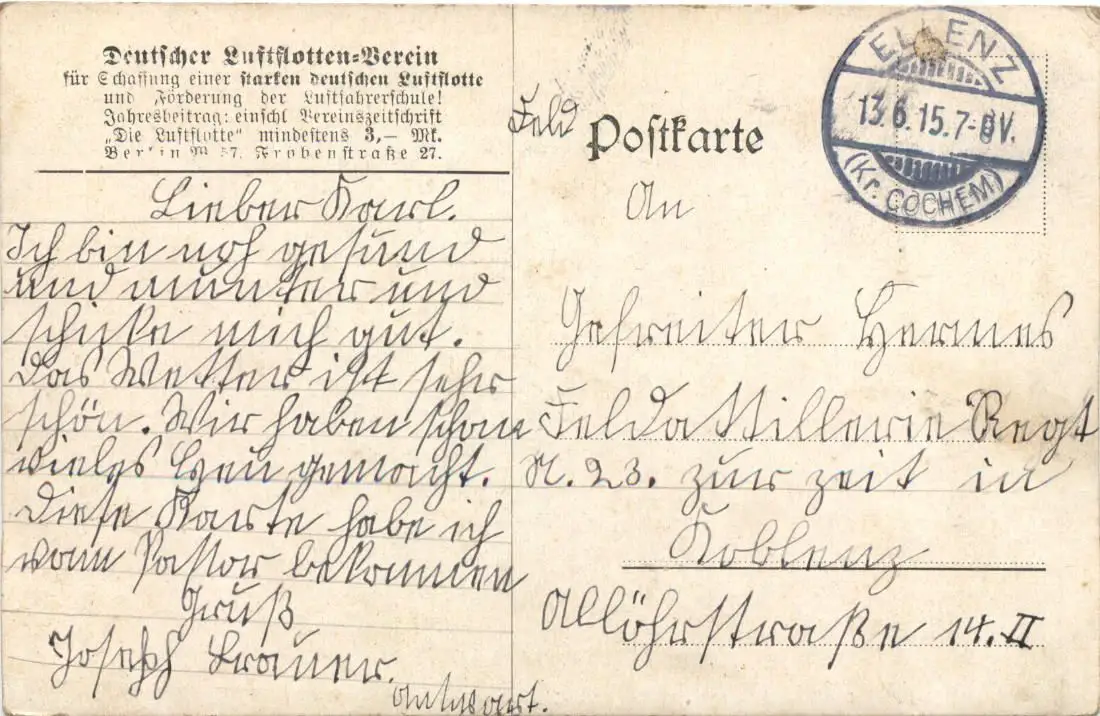 Deutscher Luftflotten-Verein
für Schaffung einer starken deutschen Luftflotte
und Förderung der Luftfahrerschule!
Jahresbeitrag: einschl Vereinszeitschrift
„Die Luftflotte" mindestens 3,— Mk.
Berlin W 57. Frobenstraße 27.
Lieber Karl.
Ich bin noh gesund
und munter und
schicke mich gut.
Das Wetter ist sehr
schön. Wir haben schon
vieles Heu gemacht.
Diese Karte habe ich
vom Pastor bekommen
Gruß
Joseph Brauer.
Antwort.
Feld Postkarte
ELLENZ
13.6.15.7-8V.
(Kr. COCHEM)
An
Gefreiter Hermes
Feldattillerie Regt
N. 23. zur zeit in
Koblenz
Allöhrstraße 14. II